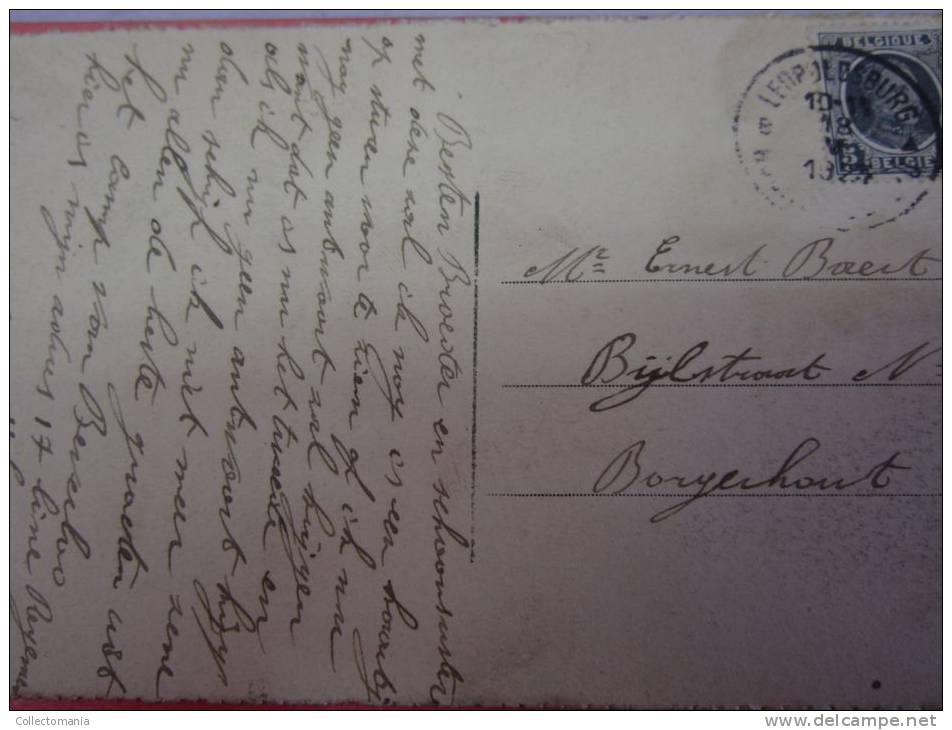 Besten Broeder en schoonsuster
met dese zal ik nog is een kaartj
op sturen voor te zien of ik nu
nog geen antwoort zal krijgen
want dat is nu het tweede en
als ik nu geen antwoort krijg
dan schijf ik niet meer
nu allen de beste groeten uit
het camp van Bersebo
hier is mijn adres 17 Line
BELGIQUE
BELGIË
LEOPOLDSBURG
10-11
Mr Ernest Baert
Bijlstraat N
Borgerhout
Collectomania
www.delcampe.net